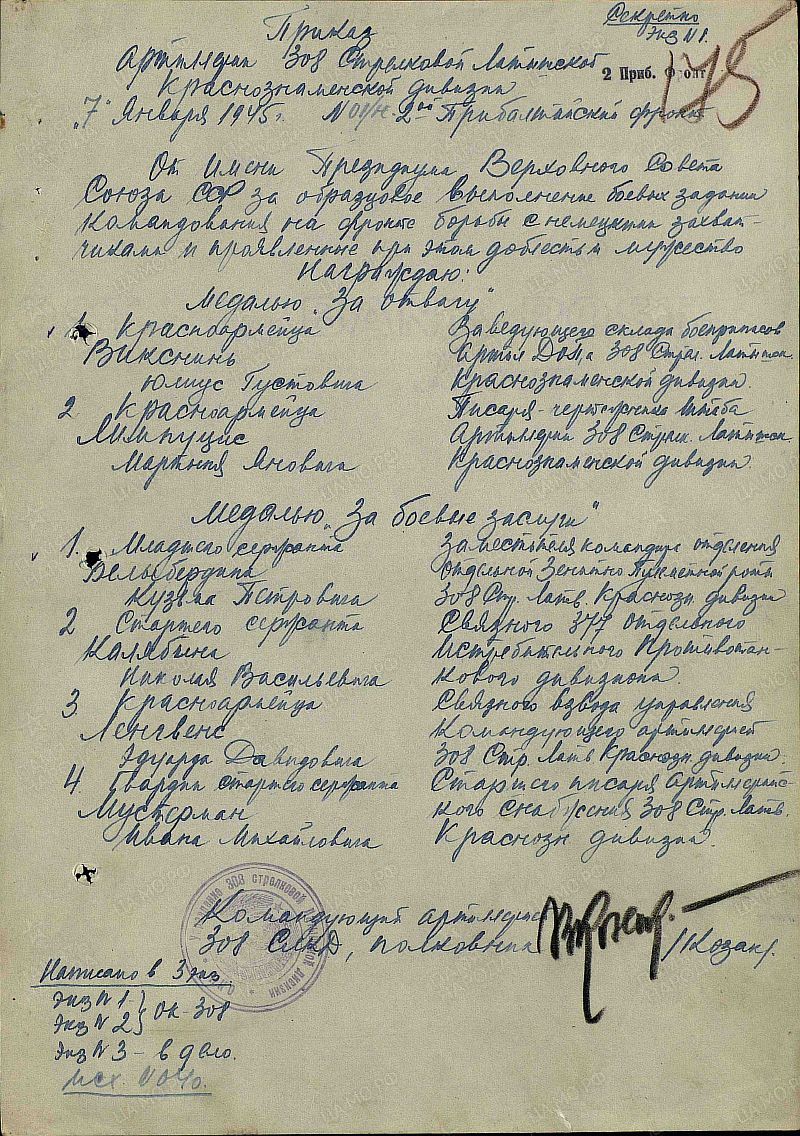 Секретно
Экз N 1.
Приказ
Артиллерии 308 Стрелковой Латышской
Краснознаменной дивизии
2 Приб. Фронт
175
"7" Января 1945 г. N 01/н 2ой Прибалтийский фронт
От Имени Президиума Верховного Совета
Союза ССР за образцовое выполнение боевых заданий
командования на фронте борьбы с немецкими захват-
чиками и проявленные при этом доблесть и мужество
Награждаю:
Медалью "За отвагу"
1. Красноармейца Заведующего склада боеприпасов
Викснинь Артил ДОПа 308 Стрел. Латышск.
Юлиус Густовича Краснознаменской дивизии.
2 Красноармейца Писаря-чертежника Штаба
Лимпуцис Артиллерии 308 Стрелк. Латышск.
Мартиня Яновича Краснознаменской дивизии.
Медалью "За боевые заслуги"
1. Младшего сержанта Заместителя командира отделения
Белобердина отдельной Зенитно Пулеметной роты
Кузьма Петровича 308 Стр. Латв. Краснозн. дивизии
2 Старшего сержанта Связного 377 отдельного
Калябина Истребительного Противотан-
Николая Васильевича кового дивизиона.
3 Красноармейца Связного взвода управления
Ленгвенс Командующего артиллерией
Эдуарда Давидовича 308 Стр. Латв Краснозн. дивизии.
4. Гвардии старшего сержанта Старшего писаря Артиллерийс-
Мустерман кого снабжения 308 Стр. Латв.
Ивана Михайловича Краснозн дивизии.
Командующий артиллерией
308 СЛКД, полковник /Козак/.
Написано в 3 экз
Экз N 1 } ОК-308
Экз N 2 }
Экз N 3 - в дело.
исх. N 040.